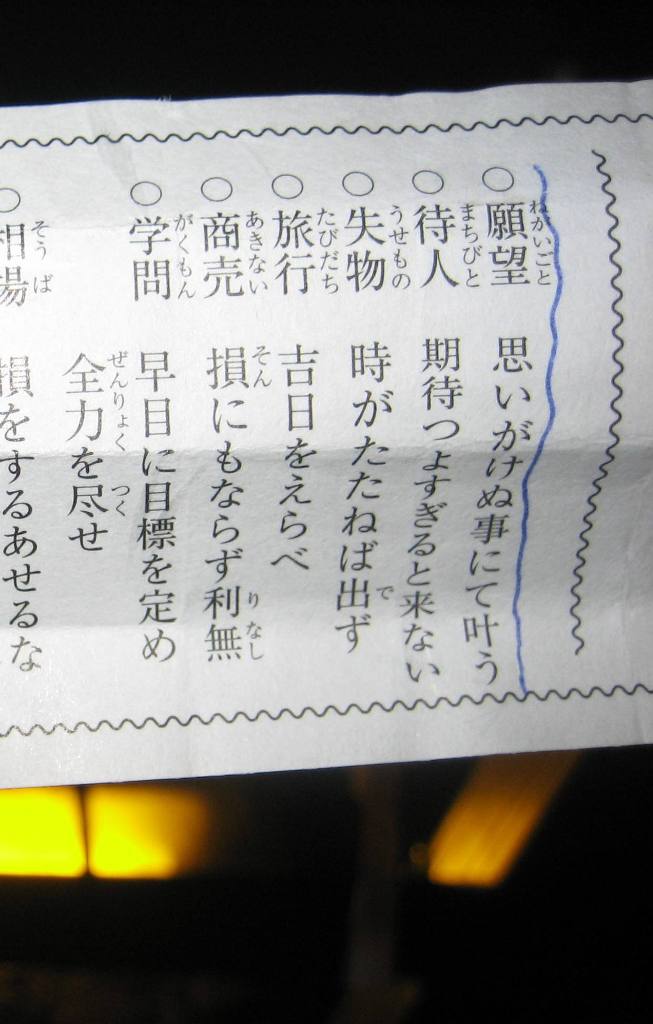 ○願望 思いがけぬ事にて叶う
ねがいごと
○待人 期待つよすぎると来ない
まちびと
○失物 時がたたねば出ず
うせもの で
○旅行 吉日をえらべ
たびだち
○商売 損にもならず利無
あきない そん りなし
○学問 早目に目標を定め
がくもん
全力を尽せ
ぜんりょく つく
○相場 損をするあせるな
そうば